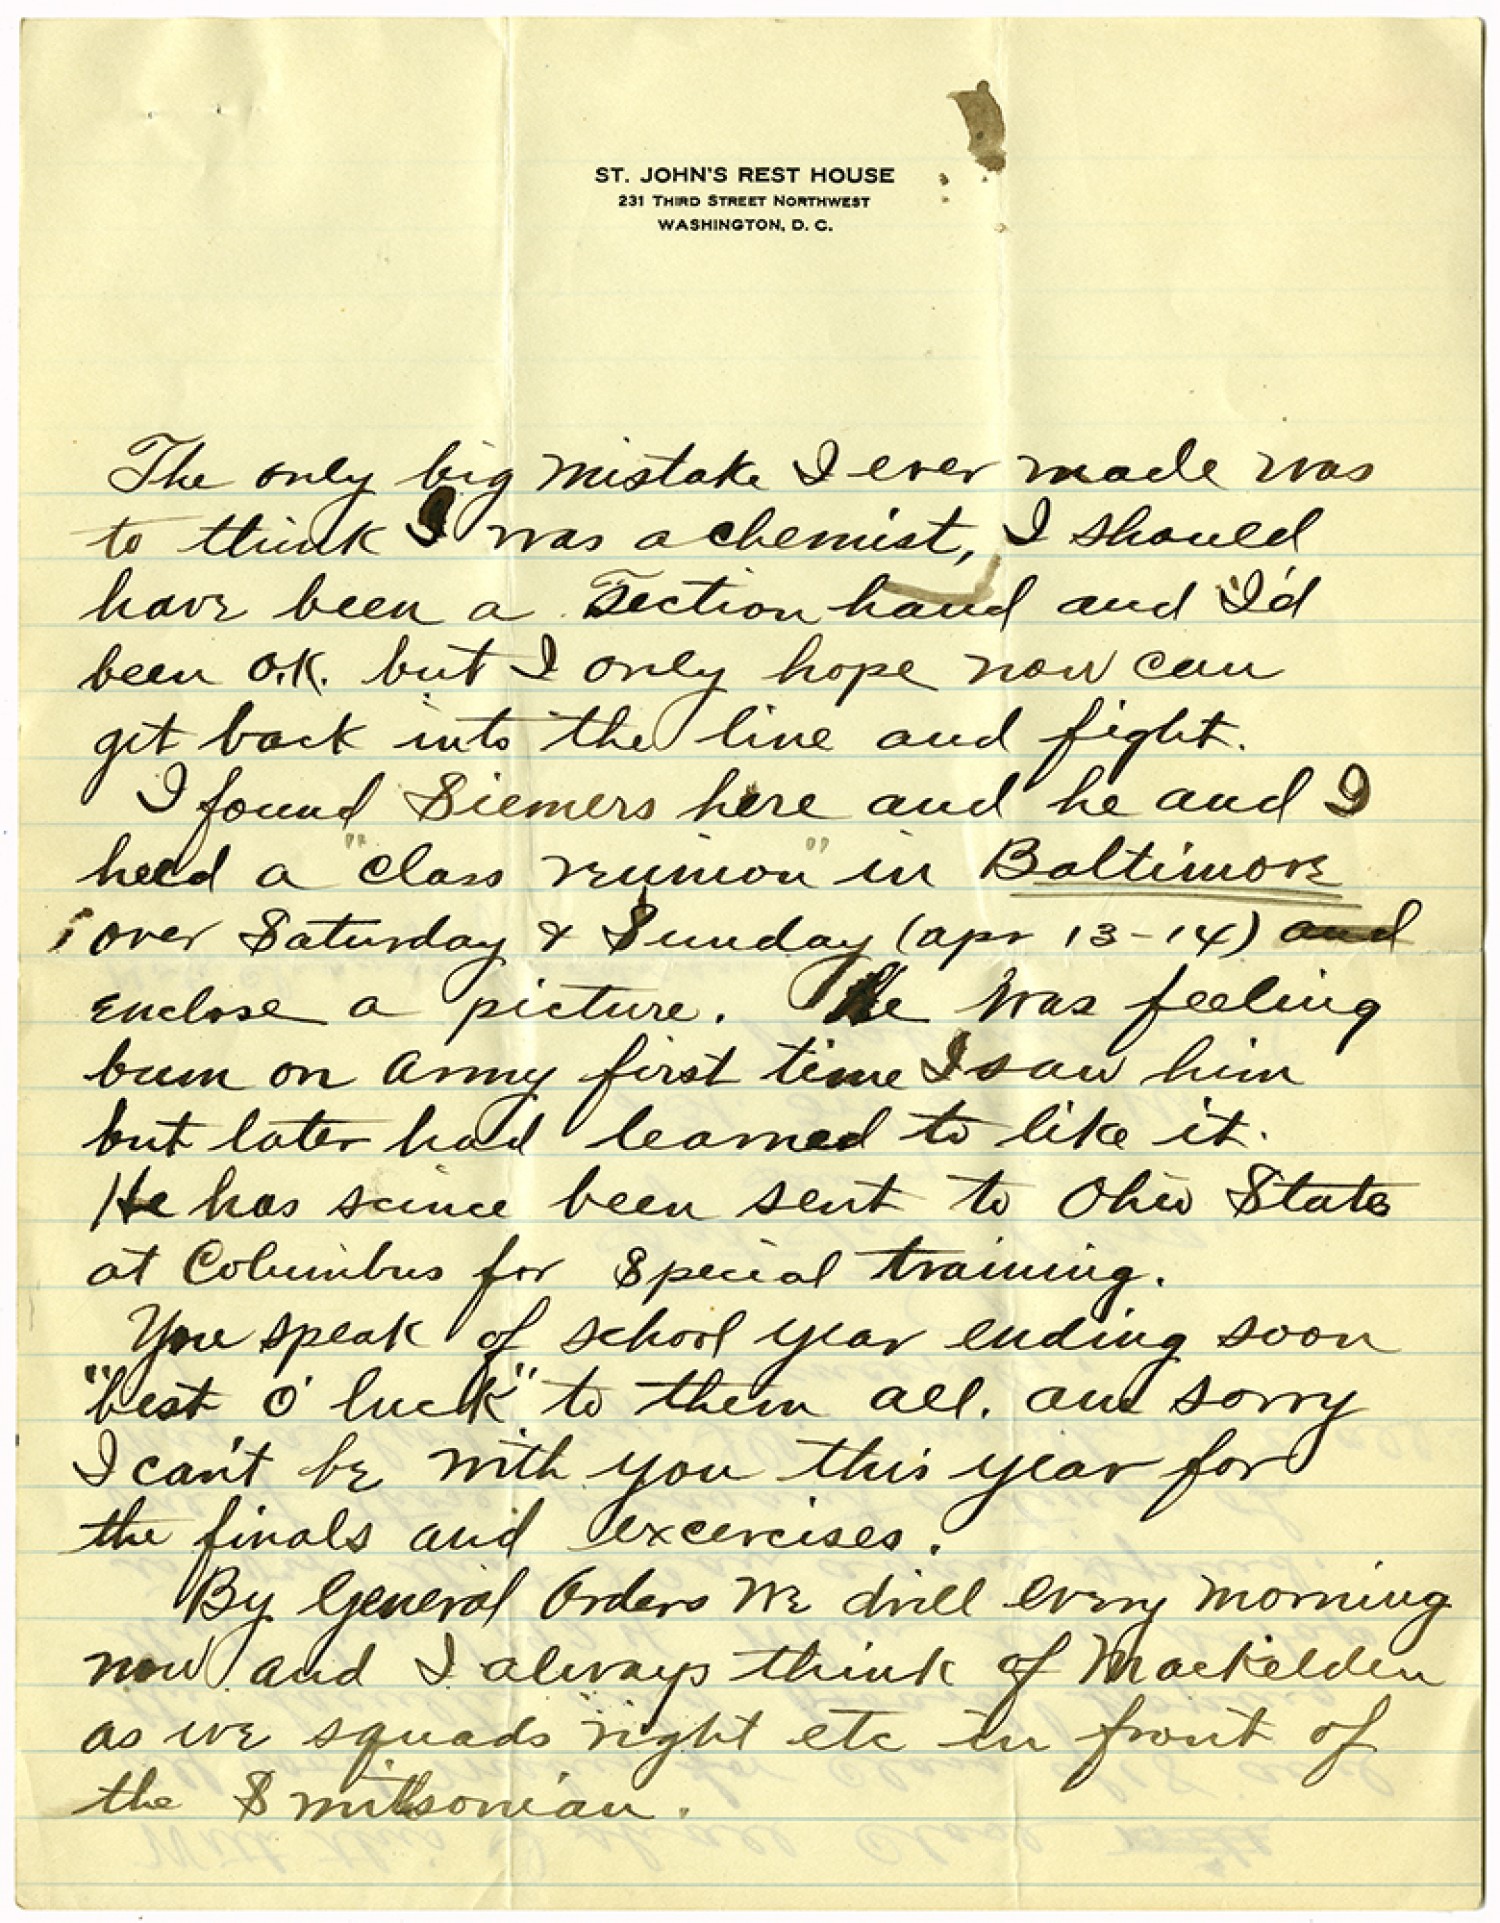 ST. JOHN'S REST HOUSE
231 THIRD STREET NORTHWEST
WASHINGTON, D. C.
The only big mistake I ever made was
to think I was a chemist, I should
have been a Section hand and I'd
been O.K. but I only hope now can
get back into the line and fight.
I found Siemers here and he and I
held a "class reunion" in Baltimore
over Saturday & Sunday (apr 13-14) and
enclose a picture. He was feeling
bum on army first time I saw him
but later had learned to like it.
He has scince been sent to Ohio State
at Columbus for special training.
You speak of school year ending soon
"best o' luck" to them all. am sorry
I can't be with you this year for
the finals and excercises.
By General Orders we drill every morning
now and I always think of Mackelden
as we squads right etc in front of
the Smithsonian.